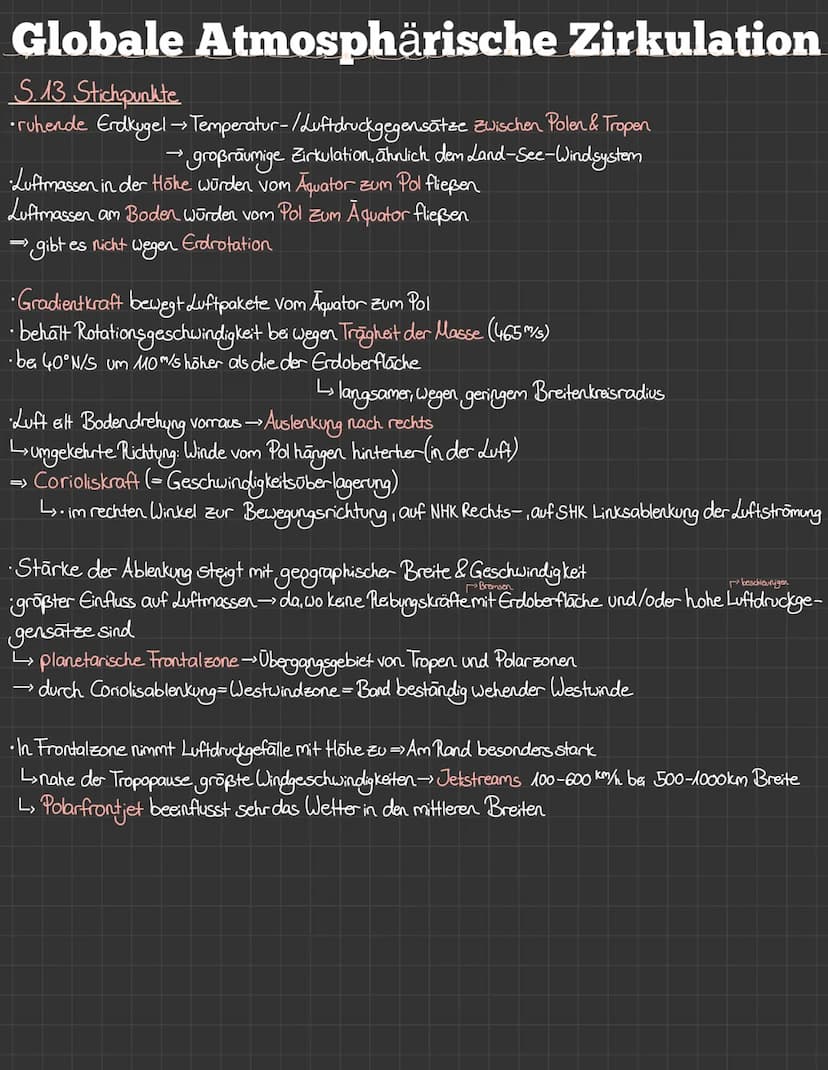 Globale Atmosphärische Zirkulation
S.13 Stichpunkte
·ruhende Erdkugel → Temperatur-/Luftdruckgegensätze zwischen Polen & Tropen
→ großräumige Zirkulation, ähnlich dem Land-See-Windsystem
·Luftmassen in der Höhe würden vom Äquator zum Pol fließen
Luftmassen am Boden würden vom Pol zum Äquator fließen
⇒ gibt es nicht wegen Erdrotation
·Gradientkraft bewegt Luftpakete vom Äquator zum Pol
·behält Rotationsgeschwindigkeit bei wegen Trägheit der Masse (465 m/s)
·bei 40°N/S um 110 m/s höher als die der Erdoberfläche
↳ langsamer, wegen geringem Breitenkreisradius
·Luft eilt Bodendrehung vorraus → Auslenkung nach rechts
↳ umgekehrte Richtung: Winde vom Pol hängen hinterher (in der Luft)
⇒ Corioliskraft (= Geschwindigkeitsüberlagerung)
↳ · im rechten Winkel zur Bewegungsrichtung, auf NHK Rechts-, auf SHK Linksablenkung der Luftströmung
·Stärke der Ablenkung steigt mit geographischer Breite & Geschwindigkeit
↱ Bremsen ↱ beschleunigen
·größter Einfluss auf Luftmassen → da, wo keine Reibungskräfte mit Erdoberfläche und/oder hohe Luftdruckge-
gensätze sind
↳ planetarische Frontalzone → Übergangsgebiet von Tropen und Polarzonen
→ durch Coriolisablenkung = Westwindzone = Band beständig wehender Westwinde
·In Frontalzone nimmt Luftdruckgefälle mit Höhe zu ⇒ Am Rand besonders stark
↳ nahe der Tropopause größte Windgeschwindigkeiten → Jetstreams 100-600 km/h bei 500-1000km Breite
↳ Polarfrontjet beeinflusst sehr das Wetter in den mittleren Breiten